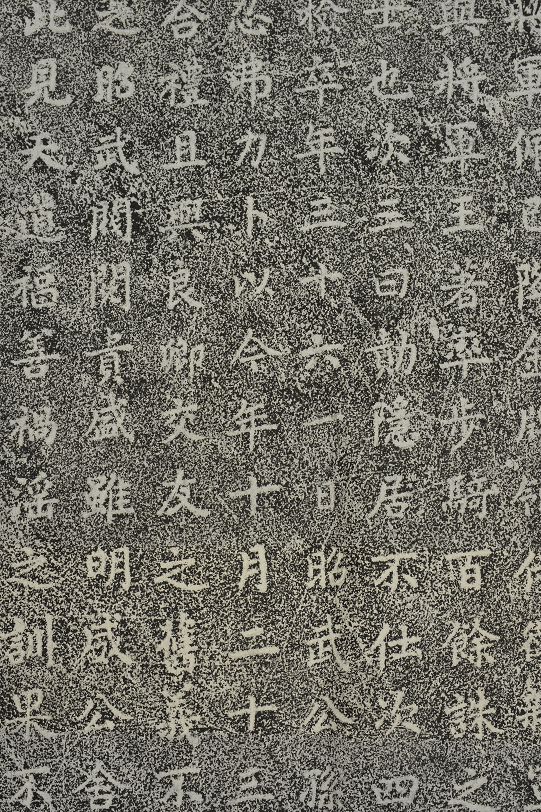 將軍
與將軍王者率步騎百餘誅之
士也次三曰勛隱居不仕次四
於卒年五十六一日昭武公孫
忍弗力卜以今年十月二十三
合禮且與良卿交友之舊義不
之昭武閥閱貴盛雖明威公舍
此見天道福善禍淫之訓果不